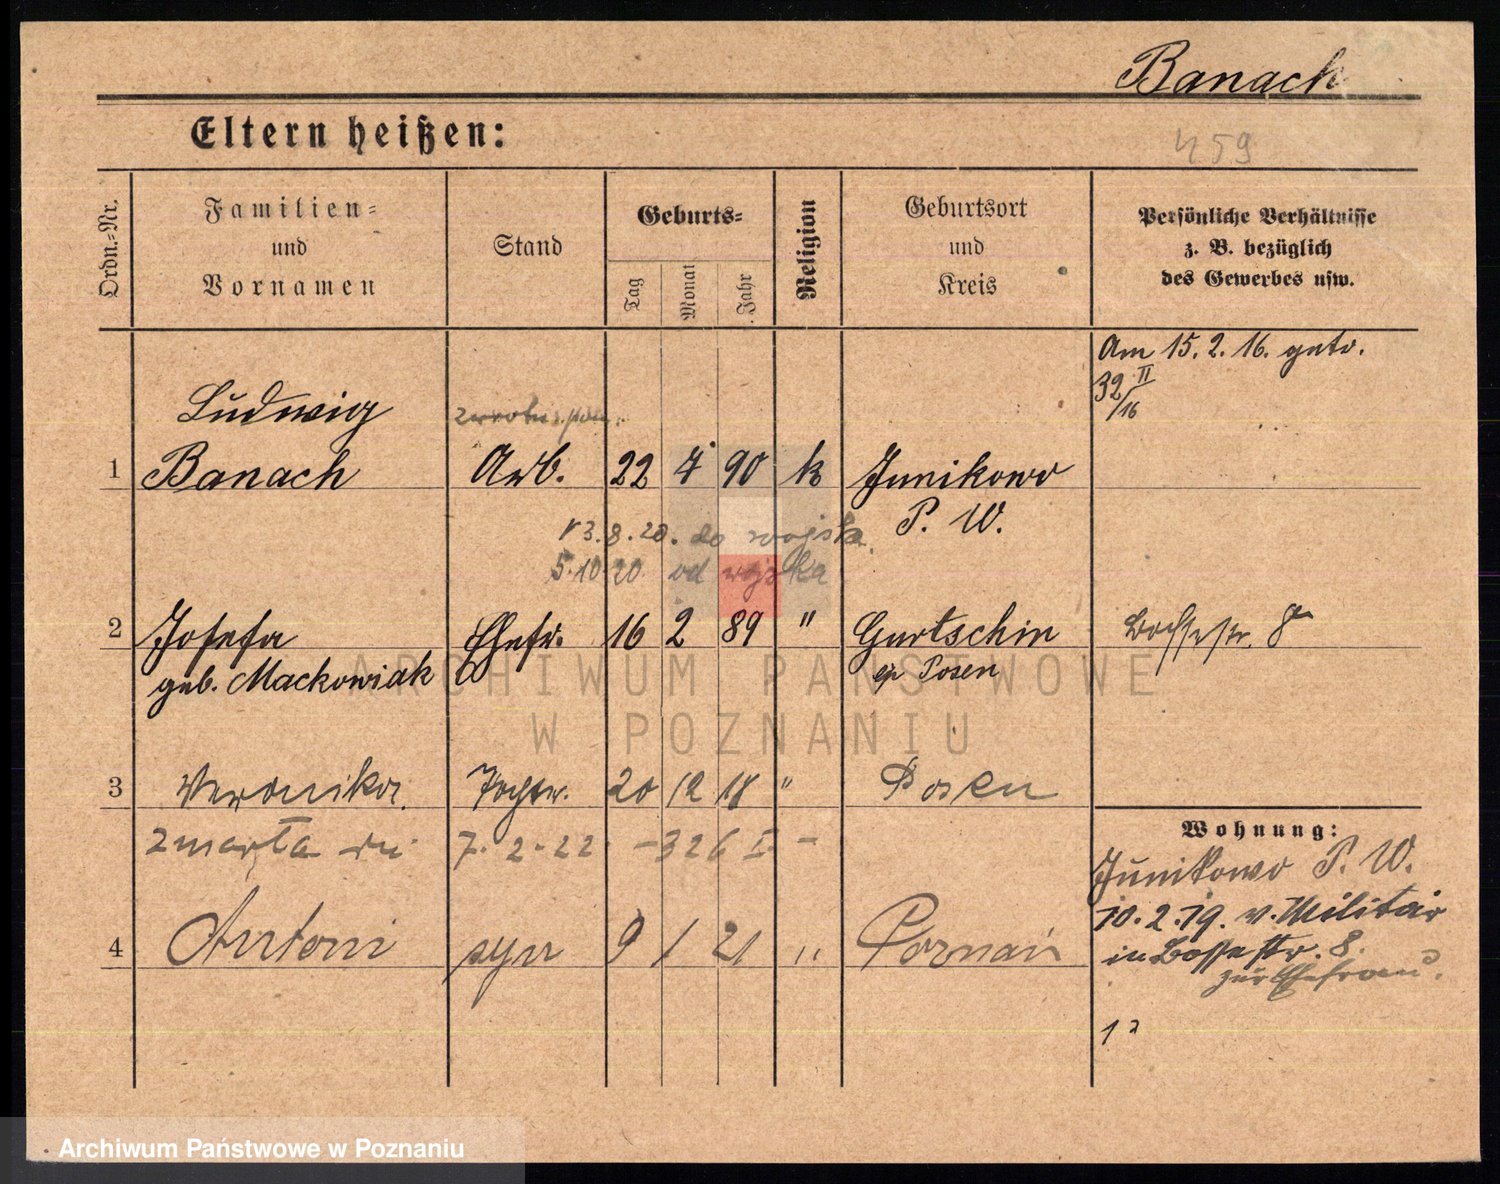 Banach
Eltern heißen:
459
Ordn.-Nr.
Familien-
und
Vornamen
Stand
Geburts-
Tag
Monat
Jahr
Religion
Geburtsort
und
Kreis
Persönliche Verhältnisse
z. B. bezüglich
des Gewerbes usw.
Am 15.2.16. getr.
32 II/16
Ludwig
1 Banach Arb. 22 7 90 k Junikowo
P. W.
3.8.20. do wojska
5.10.20 od wojska
2 Josefa Ehefr. 16 2 89 " Gurtschin Bosestr. 8
geb. Mackowiak Posen
3 Veronika Tochter 20 12 18 " Posen
zmarła dn. 7.2.22 - 326 I -
4 Antoni syn 9 1 21 " Poznań
Wohnung:
Junikowo P. W.
10.2.19. v. Militär
in Bosestr. 8.
zur Ehefrau.
ARCHIWUM PAŃSTWOWE
W POZNANIU
Archiwum Państwowe w Poznaniu